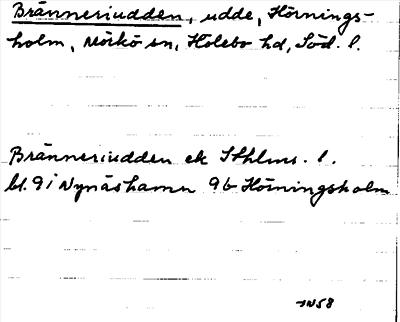 Bränneriudden, udde, Hörnings-
holm, Mörkö sn, Hölebo hd, Söd. l.
Bränneriudden ek Sthlms. l.
bl. 9i Nynäshamn 9b Hörningsholm
JN58